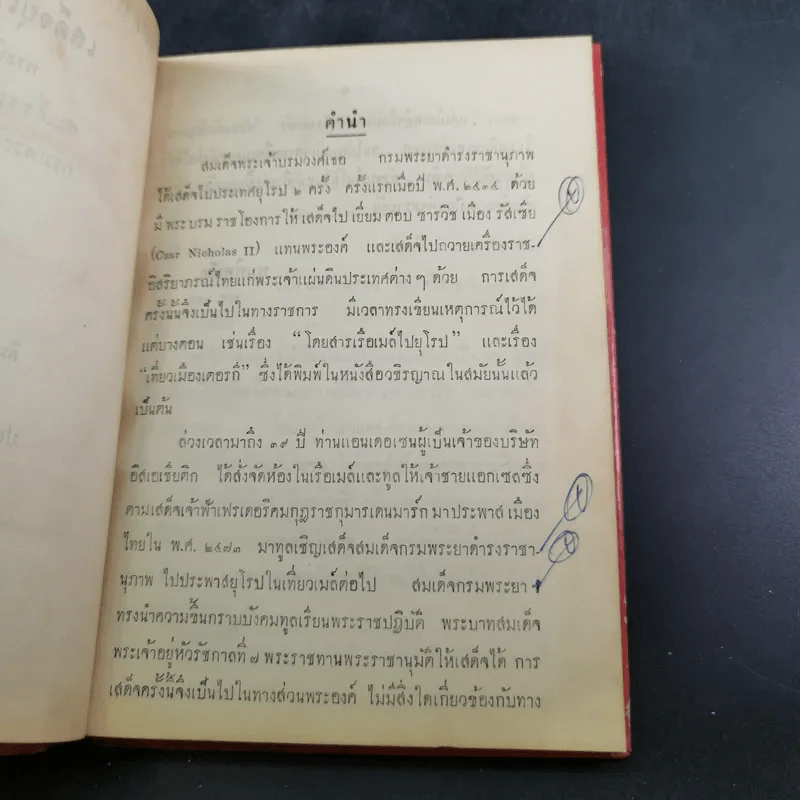 คำนำ
สมเด็จพระเจ้าบรมวงศ์เธอ กรมพระยาดำรงราชานุภาพ
ได้เสด็จไปประเทศยุโรป ๒ ครั้ง ครั้งแรกเมื่อปี พ.ศ. ๒๔๓๔ ด้วย
มีพระบรมราชโองการให้เสด็จไปเยี่ยมตอบซารวิชเมืองรัสเซีย
(Czar Nicholas II) แทนพระองค์ และเสด็จไปถวายเครื่องราช-
อิสริยาภรณ์ไทยแก่พระเจ้าแผ่นดินประเทศต่าง ๆ ด้วย การเสด็จ
ครั้งนั้นจึงเป็นไปในทางราชการ มีเวลาทรงเขียนเหตุการณ์ไว้ได้
แต่บางตอน เช่นเรื่อง “โดยสารเรือเมล์ไปยุโรป” และเรื่อง
“เที่ยวเมืองเตอรกี” ซึ่งได้พิมพ์ในหนังสือวชิรญาณในสมัยนั้นแล้ว
เป็นต้น
ล่วงเวลามาถึง ๓๙ ปี ท่านแอนเดอเซนผู้เป็นเจ้าของบริษัท
อิสเอเชียติก ได้สั่งจัดห้องในเรือเมล์และทูลให้เจ้าชายแอกเซลซึ่ง
ตามเสด็จเจ้าฟ้าเฟรเดอริคมกุฎราชกุมารเดนมาร์กมาประพาสเมือง
ไทยใน พ.ศ. ๒๔๗๓ มาทูลเชิญเสด็จสมเด็จกรมพระยาดำรงราชา-
นุภาพ ไปประพาสยุโรปในเที่ยวเมล์ต่อไป สมเด็จกรมพระยา ฯ
ทรงนำความขึ้นกราบบังคมทูลเรียนพระราชปฏิบัติ พระบาทสมเด็จ
พระเจ้าอยู่หัวรัชกาลที่ ๗ พระราชทานพระราชานุมัติให้เสด็จได้ การ
เสด็จครั้งนี้จึงเป็นไปในทางส่วนพระองค์ ไม่มีสิ่งใดเกี่ยวข้องกับทาง